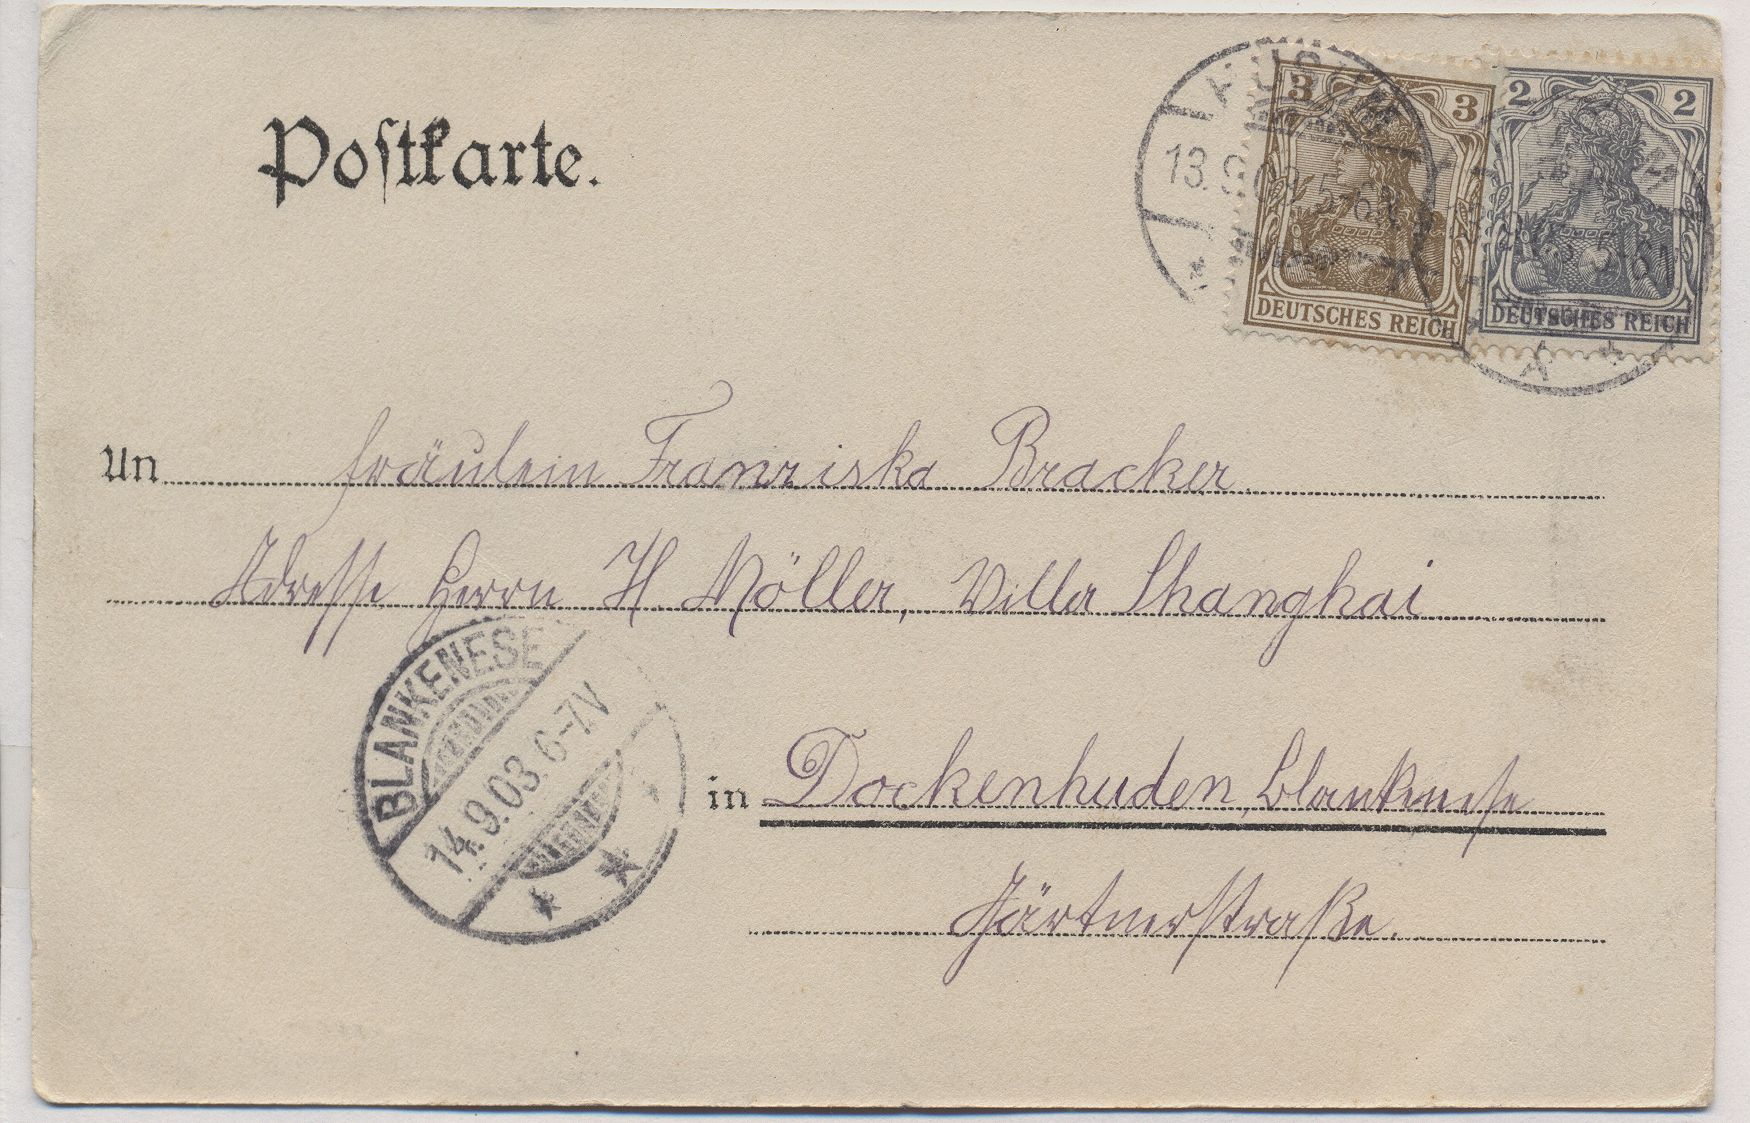 Postkarte.
3 3
DEUTSCHES REICH
2 2
DEUTSCHES REICH
13.9.03. 5-6N
An Fräulein Franziska Bracker.
Adresse Herrn H Möller, Villa Shanghai
BLANKENESE
14.9.03. 6-7N
in Dockenhuden, Blankenese
Gärtnerstraße.